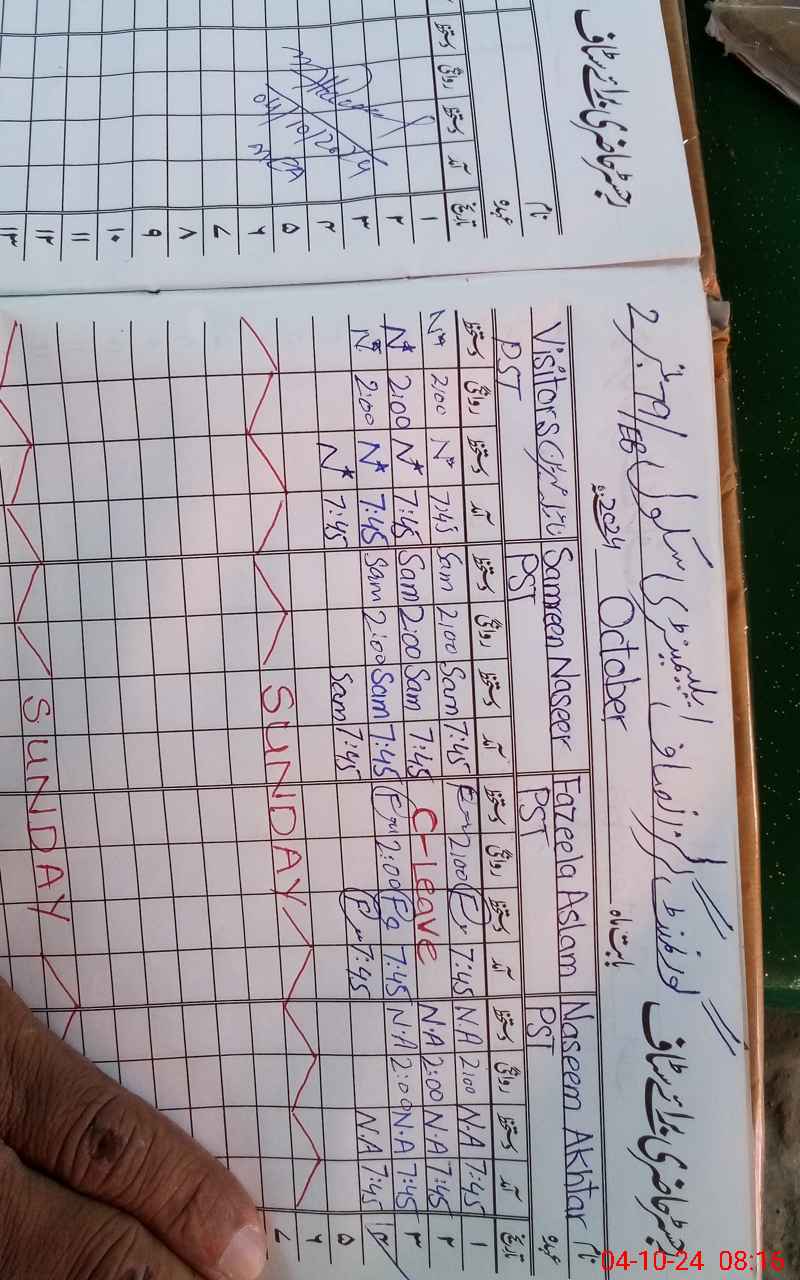 رجسٹر حاضری برائے سٹاف
نام
عہدہ
تاریخ آمد دستخط روانگی دستخط
۱
۲
۳
۴
۵
۶
۷
۸
۹
۱۰
۱۱
۱۲
۱۳
04/10/2024
رجسٹر حاضری برائے سٹاف
گورنمنٹ گرلز انصاف ایلیمنٹری سکول
EB
بابت ماہ October 2024
نام Naseem Akhtar Fazeela Aslam Samreen Naseer Visitors
عہدہ PST PST PST PST
تاریخ آمد دستخط روانگی دستخط آمد دستخط روانگی دستخط آمد دستخط روانگی دستخط آمد دستخط روانگی دستخط
۱ 7:45 N.A 2:00 N.A 7:45 2:00 7:45 Sam 2:00 Sam 7:45 N* 2:00 N*
۲ 7:45 N.A 2:00 N.A C-Leave 7:45 Sam 2:00 Sam 7:45 N* 2:00 N*
۳ 7:45 N.A 2:00 N.A 7:45 Fa 2:00 7:45 Sam 2:00 Sam 7:45 N* 2:00 N*
۴ 7:45 N.A 7:45 7:45 Sam 7:45 N*
۵
۶ SUNDAY
۷
SUNDAY
04-10-24 08:16